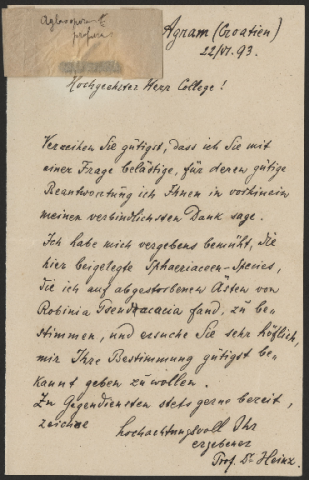 Aglaospora
profusa
Agram (Croatien)
22/VI. 93.
Hochgeehrter Herr College!
Verzeihen Sie gütigst, dass ich Sie mit
einer Frage belästige, für deren gütige
Beantwortung ich Ihnen in vorhinein
meinen verbindlichsten Dank sage.
Ich habe mich vergebens bemüht, die
hier beigelegte Sphaeriaceen-Species,
die ich auf abgestorbenen Ästen von
Robinia Pseudacacia fand, zu be-
stimmen, und ersuche Sie sehr höflich,
mir Ihre Bestimmung gütigst be-
kannt geben zu wollen.
Zu Gegendiensten stets gerne bereit,
zeichne
hochachtungsvoll Ihr
ergebener
Prof. Dr Heinz.